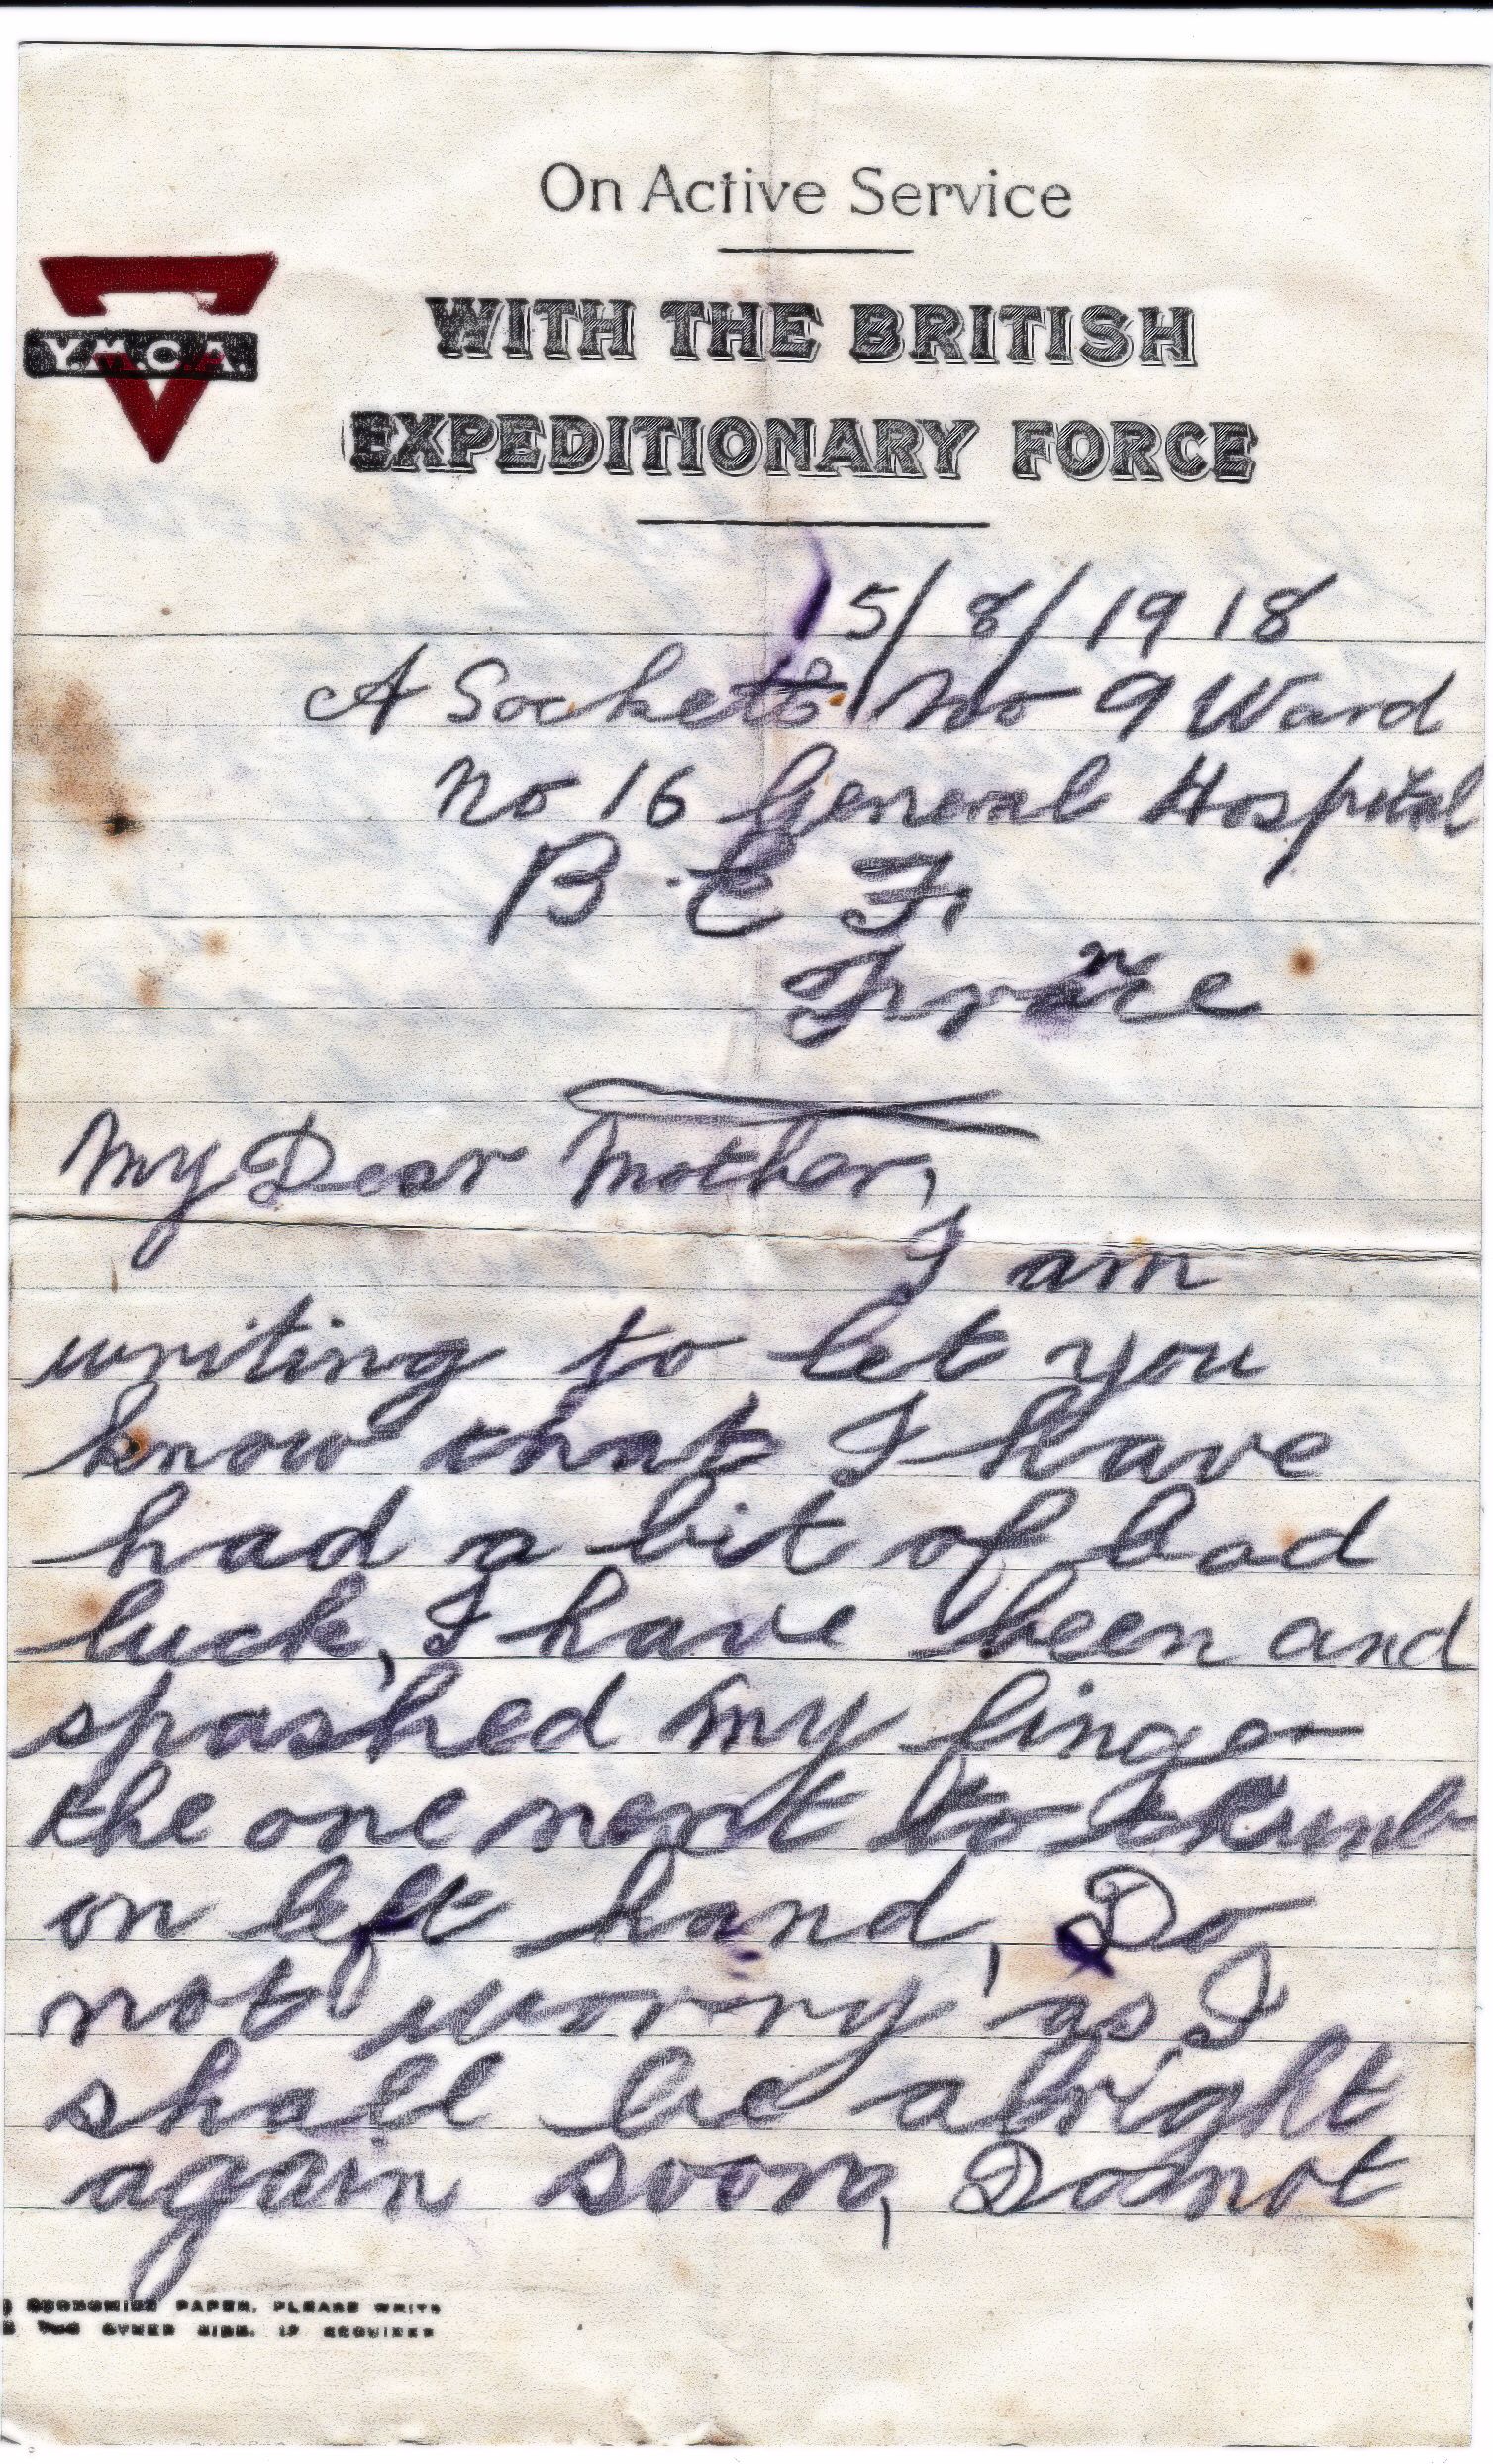 On Active Service
Y.M.C.A.
WITH THE BRITISH
EXPEDITIONARY FORCE
15/8/1918
A Sockett No 9 Ward
No 16 General Hospital
B.E.F.
France
My Dear Mother,
I am
writing to let you
know that I have
had a bit of bad
luck, I have been and
spashed my finger
the one next to thumb
on left hand, Do
not worry as I
shall be alright
again soon, Do not
ECONOMISE PAPER, PLEASE WRITE
THE OTHER SIDE, IF REQUIRED